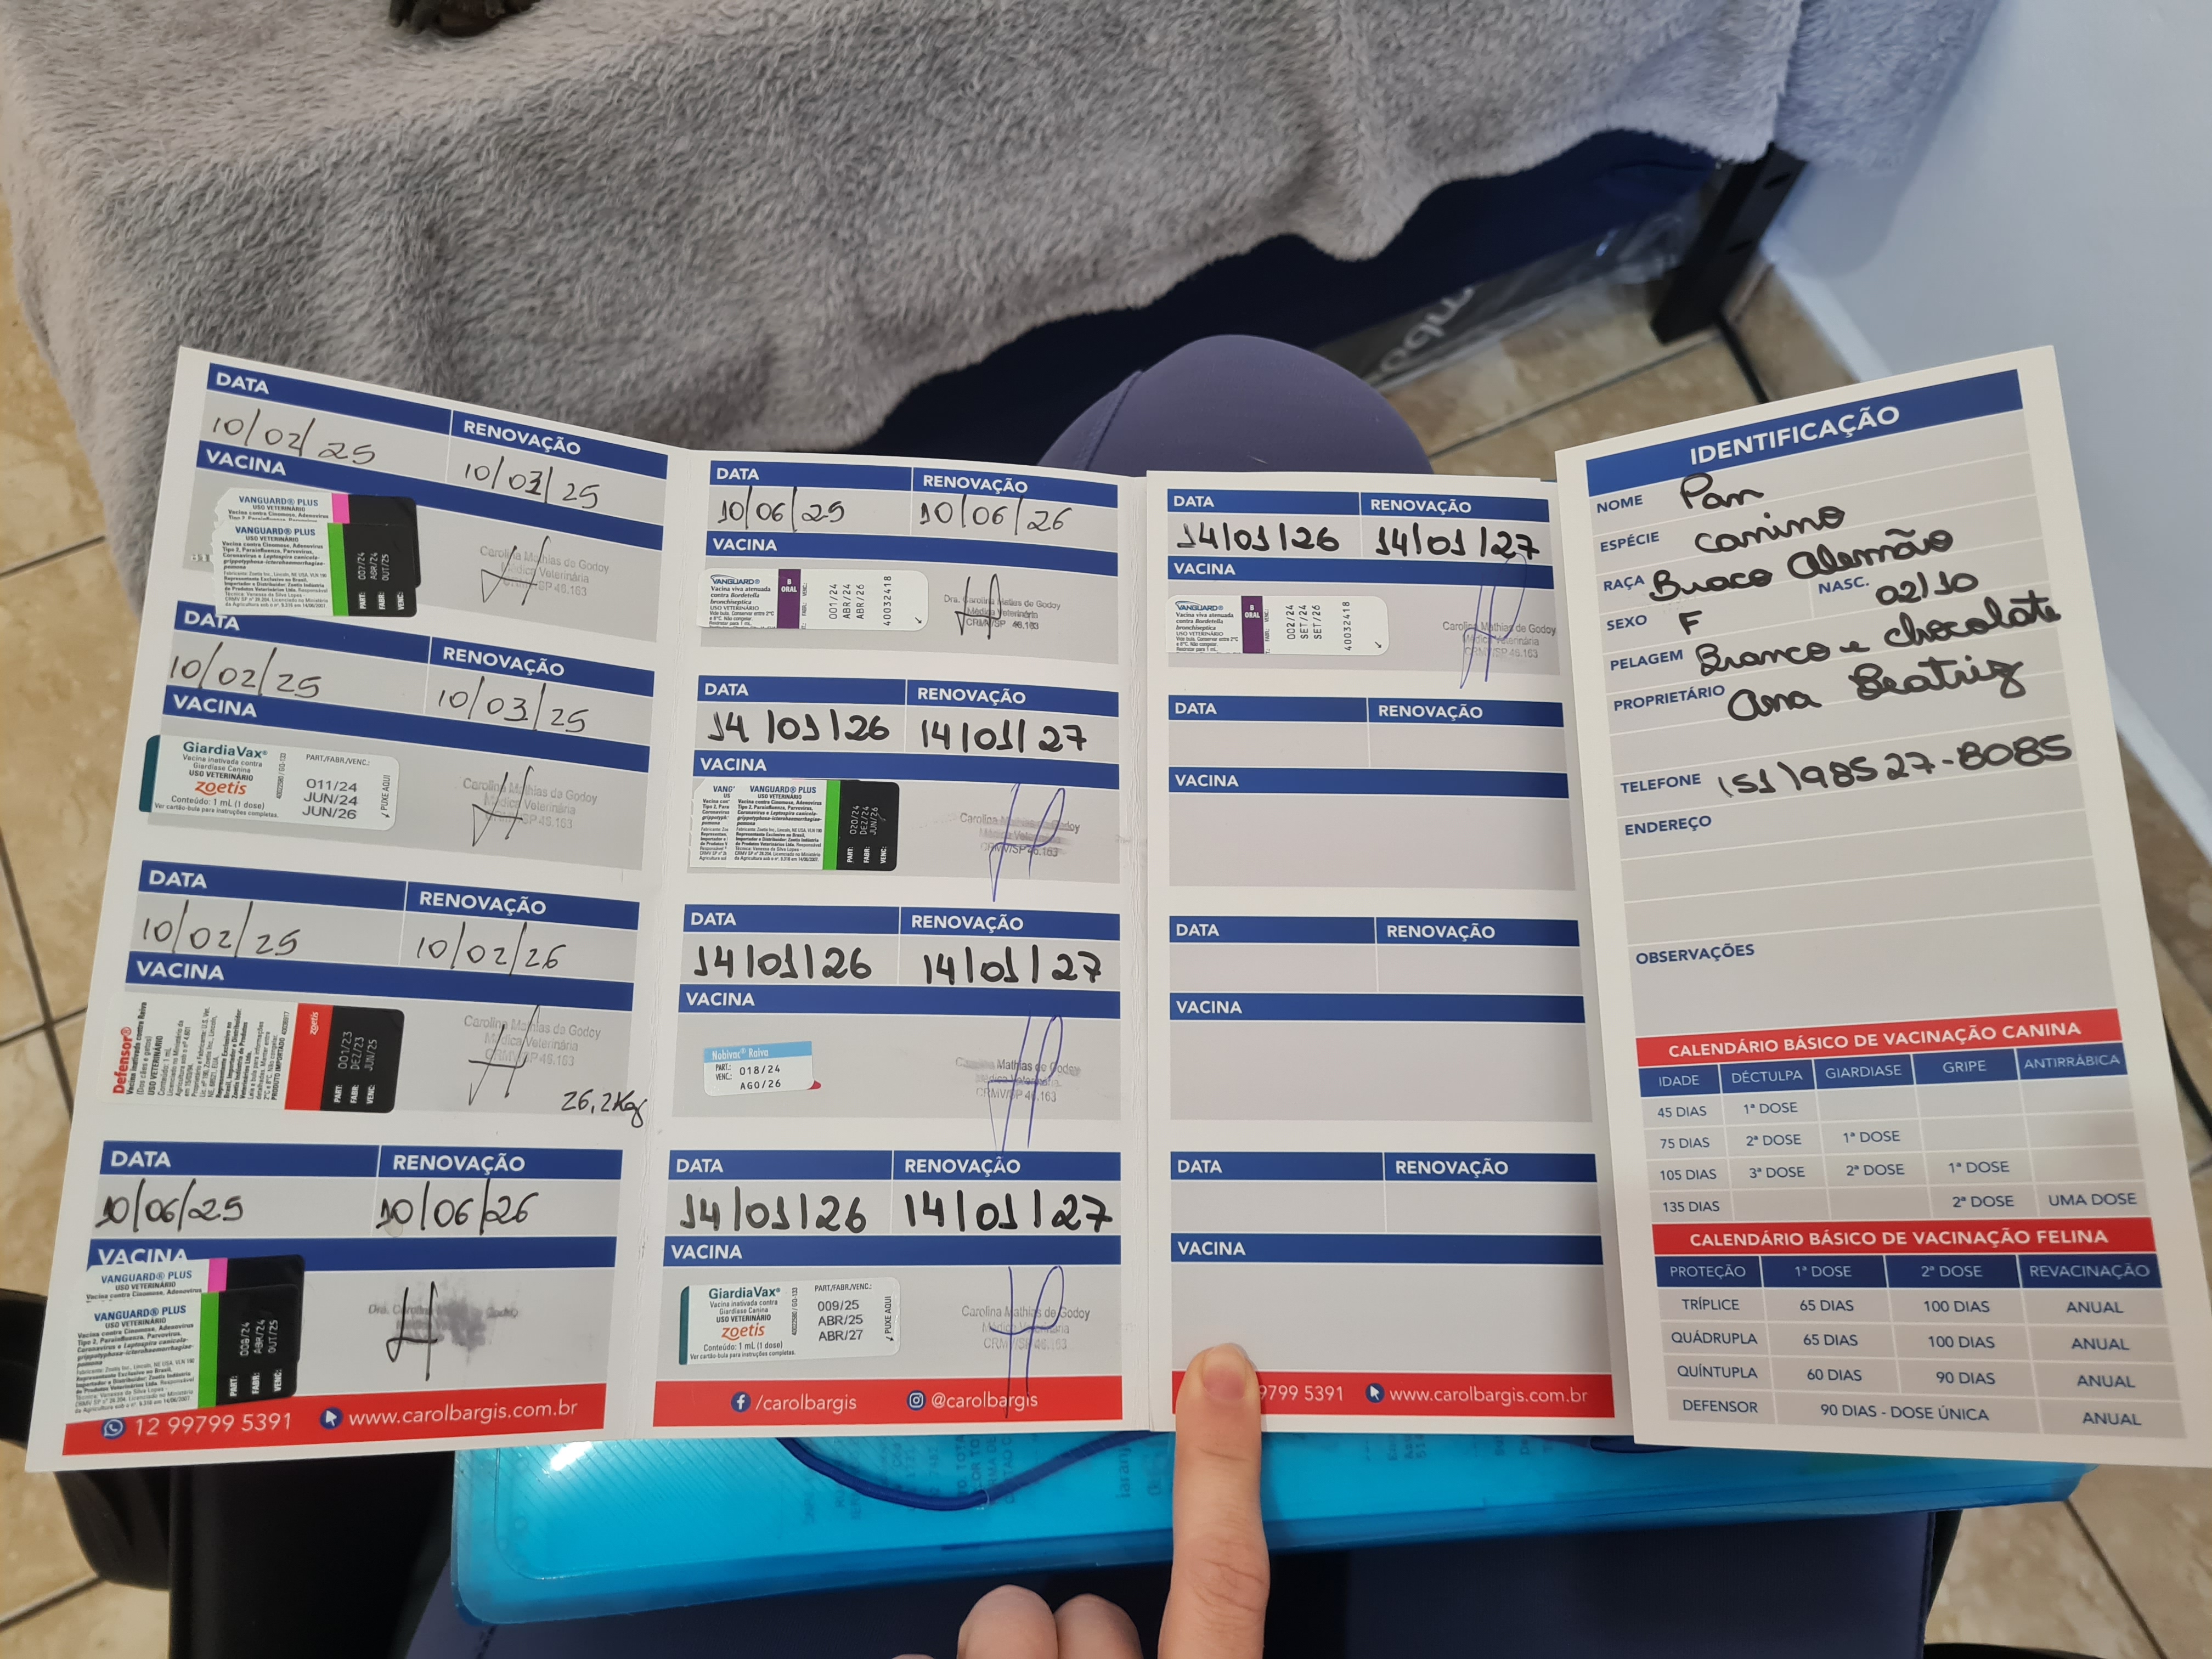 DATA
RENOVAÇÃO
10/02/25
10/03/25
VACINA
VANGUARD® PLUS
USO VETERINÁRIO
Vacina contra Cinomose, Adenovírus
VANGUARD® PLUS
USO VETERINÁRIO
Vacina contra Cinomose, Adenovírus
Tipo 2, Parainfluenza, Parvovírus,
Coronavírus e Leptospira canicola-
grippotyphosa-icterohaemorrhagiae-
pomona
PART: 007/24
FABR: ABR/24
VENC: OUT/25
Carolina Mathias de Godoy
Médica Veterinária
CRMV/SP 46.163
DATA
RENOVAÇÃO
10/02/25
10/03/25
VACINA
GiardiaVax®
Vacina inativada contra
Giardíase Canina
USO VETERINÁRIO
zoetis
Conteúdo: 1 mL (1 dose)
Ver cartão-bula para instruções completas.
PART./FABR./VENC.:
011/24
JUN/24
JUN/26
PUXE AQUI
Carolina Mathias de Godoy
Médica Veterinária
CRMV/SP 46.163
DATA
RENOVAÇÃO
10/02/25
10/02/26
VACINA
Defensor®
Vacina inativada contra Raiva
(Dos cães e gatos)
USO VETERINÁRIO
Conteúdo: 1 mL
zoetis
PART: 001/23
FABR: DEZ/23
VENC: JUN/25
Carolina Mathias de Godoy
Médica Veterinária
CRMV/SP 46.163
26,2Kg
DATA
RENOVAÇÃO
10/06/25
10/06/26
VACINA
VANGUARD® PLUS
USO VETERINÁRIO
Vacina contra Cinomose, Adenovírus
VANGUARD® PLUS
USO VETERINÁRIO
Vacina contra Cinomose, Adenovírus
Tipo 2, Parainfluenza, Parvovírus,
Coronavírus e Leptospira canicola-
grippotyphosa-icterohaemorrhagiae-
pomona
PART:
FABR: ABR/24
VENC: OUT/25
12 99799 5391
www.carolbargis.com.br
DATA
RENOVAÇÃO
10/06/25
10/06/26
VACINA
VANGUARD®
Vacina viva atenuada
contra Bordetella
bronchiseptica
USO VETERINÁRIO
B
ORAL
001/24
ABR/24
ABR/26
40032418
Dra. Carolina Matias de Godoy
Médica Veterinária
CRMV/SP 46.163
DATA
RENOVAÇÃO
14/01/26
14/01/27
VACINA
VANGUARD® PLUS
USO VETERINÁRIO
Vacina contra Cinomose, Adenovírus
Tipo 2, Parainfluenza, Parvovírus,
Coronavírus e Leptospira canicola-
grippotyphosa-icterohaemorrhagiae-
pomona
PART: 020/24
FABR: DEZ/24
VENC: JUN/26
Carolina Mathias de Godoy
CRMV/SP 46.163
DATA
RENOVAÇÃO
14/01/26
14/01/27
VACINA
Nobivac® Raiva
PART.: 018/24
VENC.: AGO/26
Carolina Mathias de Godoy
CRMV/SP 46.163
DATA
RENOVAÇÃO
14/01/26
14/01/27
VACINA
GiardiaVax®
Vacina inativada contra
Giardíase Canina
USO VETERINÁRIO
zoetis
Conteúdo: 1 mL (1 dose)
Ver cartão-bula para instruções completas.
PART./FABR./VENC.:
009/25
ABR/25
ABR/27
PUXE AQUI
Carolina Mathias de Godoy
Médica Veterinária
CRMV/SP 46.163
/carolbargis
@carolbargis
DATA
RENOVAÇÃO
14/01/26
14/01/27
VACINA
VANGUARD®
Vacina viva atenuada
contra Bordetella
bronchiseptica
USO VETERINÁRIO
B
ORAL
002/24
SET/24
SET/26
40032418
Carolina Mathias de Godoy
Médica Veterinária
CRMV/SP 46.163
DATA
RENOVAÇÃO
VACINA
DATA
RENOVAÇÃO
VACINA
DATA
RENOVAÇÃO
VACINA
9799 5391
www.carolbargis.com.br
IDENTIFICAÇÃO
NOME Pan
ESPÉCIE canino
RAÇA Braco Alemão
SEXO F
NASC. 02/10
PELAGEM Branco e chocolate
PROPRIETÁRIO Ana Beatriz
TELEFONE (51)98527-8085
ENDEREÇO
OBSERVAÇÕES
CALENDÁRIO BÁSICO DE VACINAÇÃO CANINA
IDADE DÉCTULPA GIARDIASE GRIPE ANTIRRÁBICA
45 DIAS 1ª DOSE
75 DIAS 2ª DOSE 1ª DOSE
105 DIAS 3ª DOSE 2ª DOSE 1ª DOSE
135 DIAS 2ª DOSE UMA DOSE
CALENDÁRIO BÁSICO DE VACINAÇÃO FELINA
PROTEÇÃO 1ª DOSE 2ª DOSE REVACINAÇÃO
TRÍPLICE 65 DIAS 100 DIAS ANUAL
QUÁDRUPLA 65 DIAS 100 DIAS ANUAL
QUÍNTUPLA 60 DIAS 90 DIAS ANUAL
DEFENSOR 90 DIAS - DOSE ÚNICA ANUAL